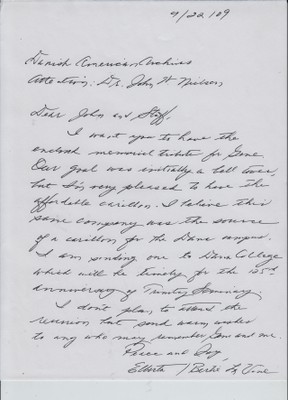 4/22/09
Danish American Archives
Attention: Dr. John W Nielsen
Dear John and Staff,
I want you to have the
enclosed memorial tribute for Gene.
Our goal was initially a bell tower,
but I'm very pleased to have the
affordable carillon. I believe this
same company was the source
of a carillon for the Dana campus.
I am sending one to Dana College
which will be timely for the 125th
anniversary of Trinity Seminary.
I don't plan to attend the
reunion but send warm wishes
to any who may remember Gene and me.
Peace and Joy,
Elberta